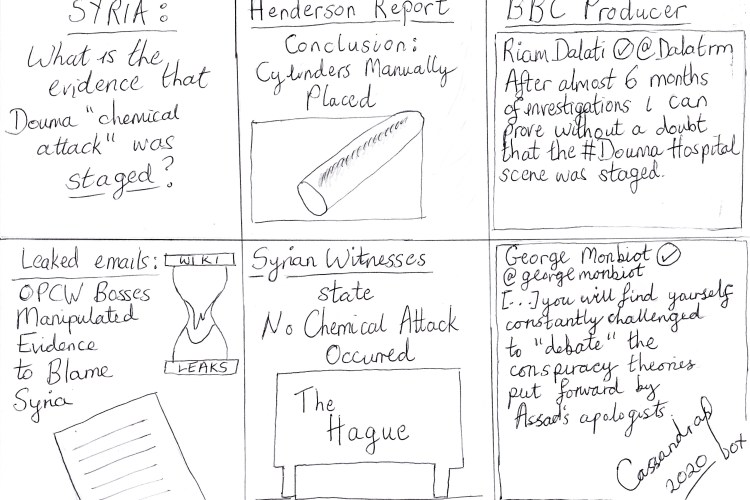 SYRIA:
What is the
evidence that
Douma "chemical
attack" was
staged?
Henderson Report
Conclusion:
Cylinders Manually
Placed
BBC Producer
Riam Dalati @Dalatrm
After almost 6 months
of investigations I can
prove without a doubt
that the #Douma Hospital
scene was staged.
Leaked emails:
WIKI
LEAKS
OPCW Bosses
Manipulated
Evidence
to Blame
Syria
Syrian Witnesses
state
No Chemical Attack
Occured
The
Hague
George Monbiot
@georgemonbiot
[...] you will find yourself
constantly challenged
to "debate" the
conspiracy theories
put forward by
Assad's apologists.
2020